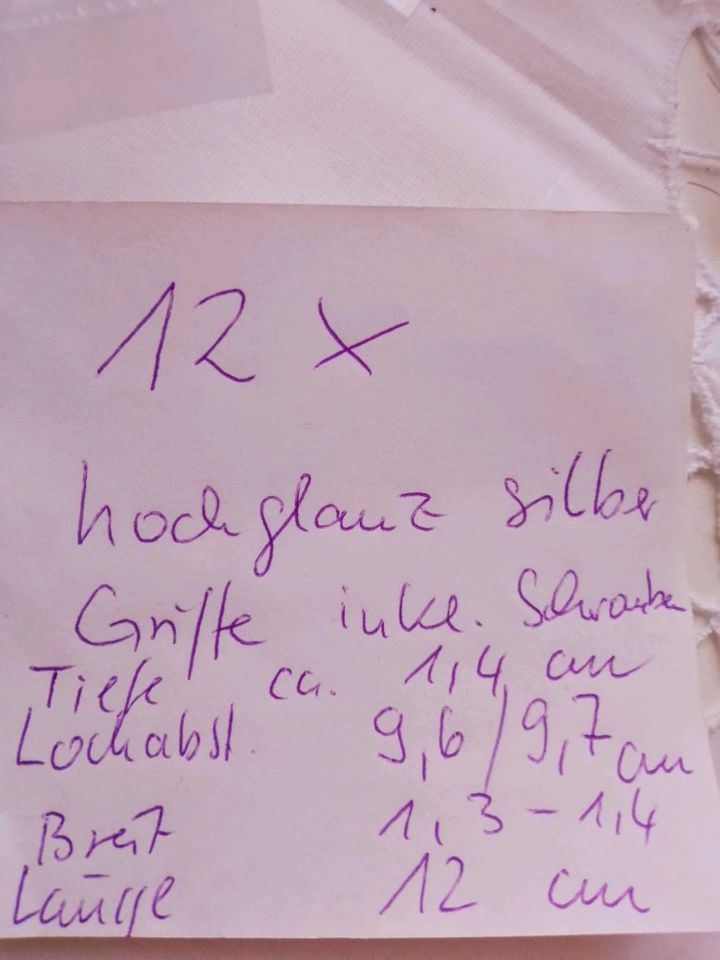 12 x
hochglanz silber
Griffe inkl. Schrauben
Tiefe ca. 1,4 cm
Lochabst. 9,6/9,7 cm
Breit 1,3-1,4
Länge 12 cm